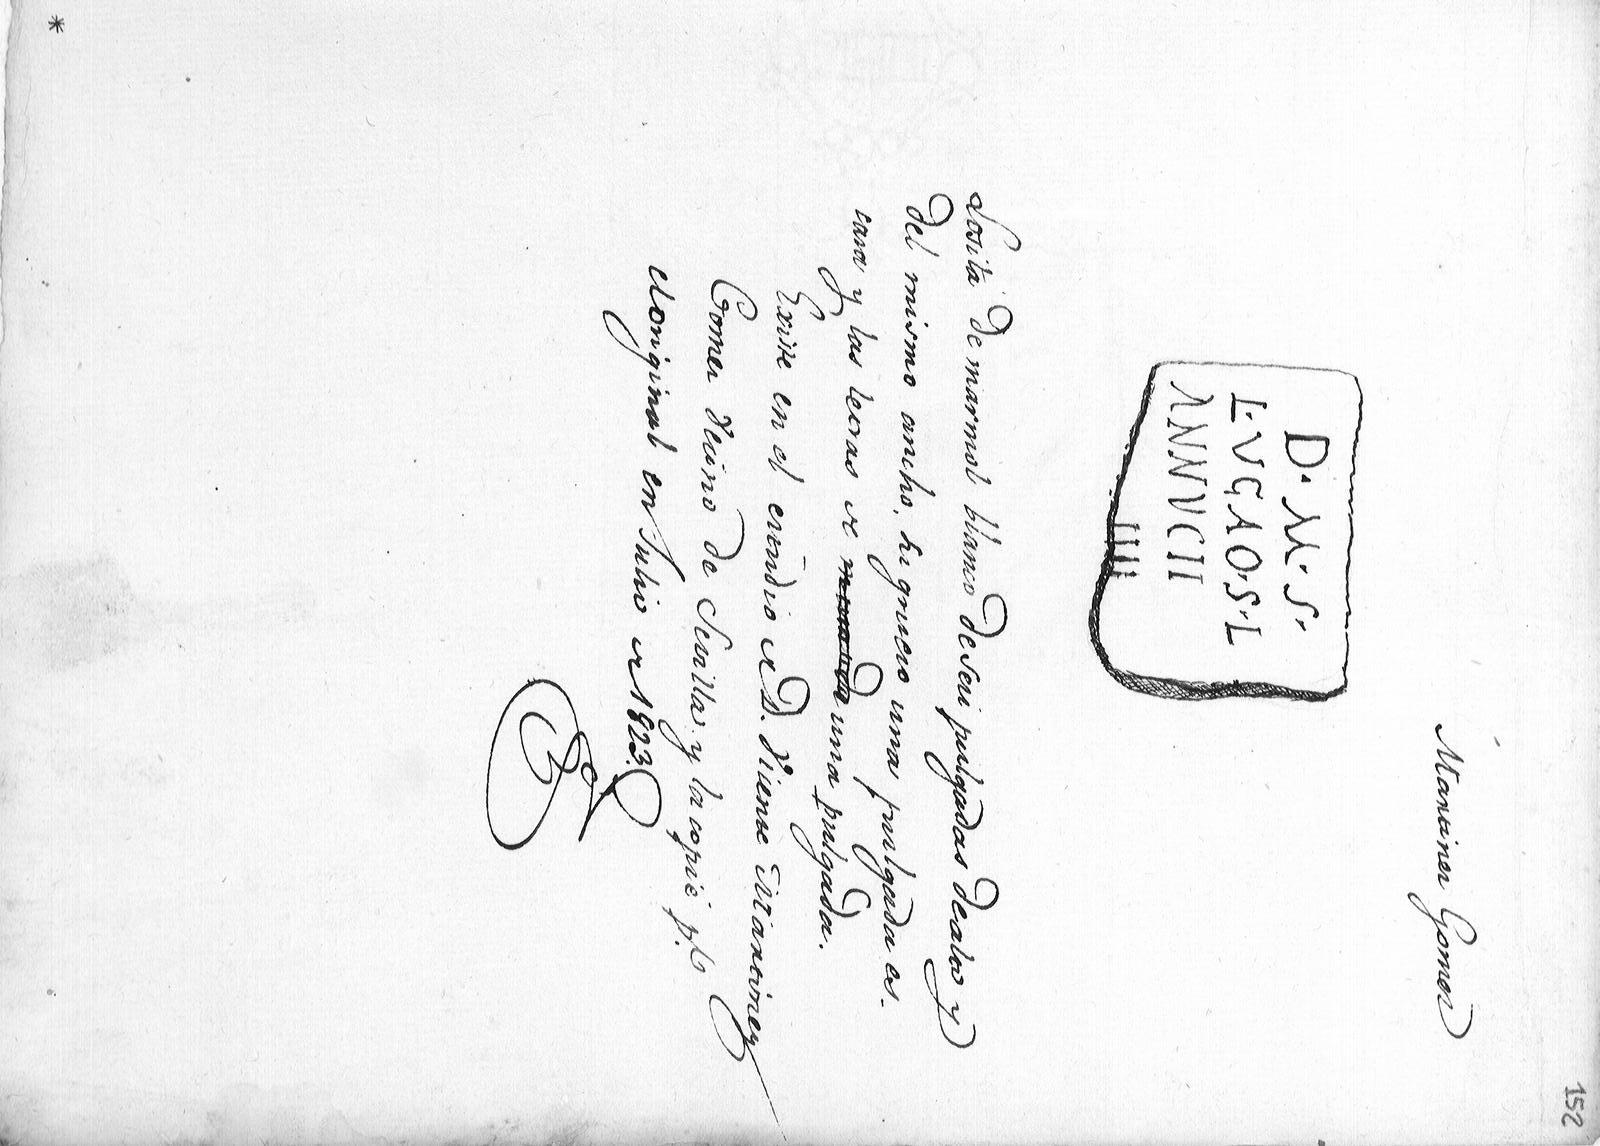 152
Martinez Gomez
D·M·S·
L·VGAO·S·L
ANNVCII
IIII
Losita de marmol blanco de seis pulgadas de alto y
del mismo ancho, su grueso una pulgada es-
casa y las letras de una pulgada.
Existe en el estudio de D. Vicente Martinez
Gomez Vecino de Sevilla, y la copié pr.
el original en Julio de 1823.
*